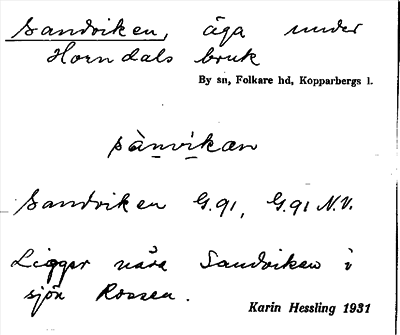 Sandviken, äga under
Horndals bruk
By sn, Folkare hd, Kopparbergs l.
sànvikan
Sandviken G.91, G.91 N.V.
Ligger nära Sandviken i
sjön Rossen.
Karin Hessling 1931